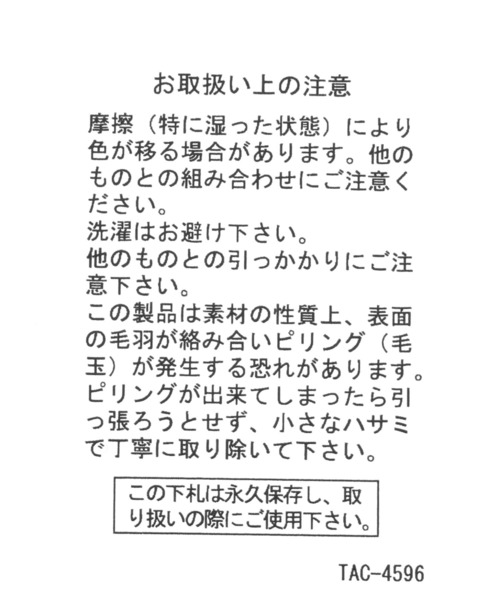 お取扱い上の注意
摩擦（特に湿った状態）により
色が移る場合があります。他の
ものとの組み合わせにご注意く
ださい。
洗濯はお避け下さい。
他のものとの引っかかりにご注
意下さい。
この製品は素材の性質上、表面
の毛羽が絡み合いピリング（毛
玉）が発生する恐れがあります。
ピリングが出来てしまったら引
っ張ろうとせず、小さなハサミ
で丁寧に取り除いて下さい。
この下札は永久保存し、取
り扱いの際にご使用下さい。
TAC-4596